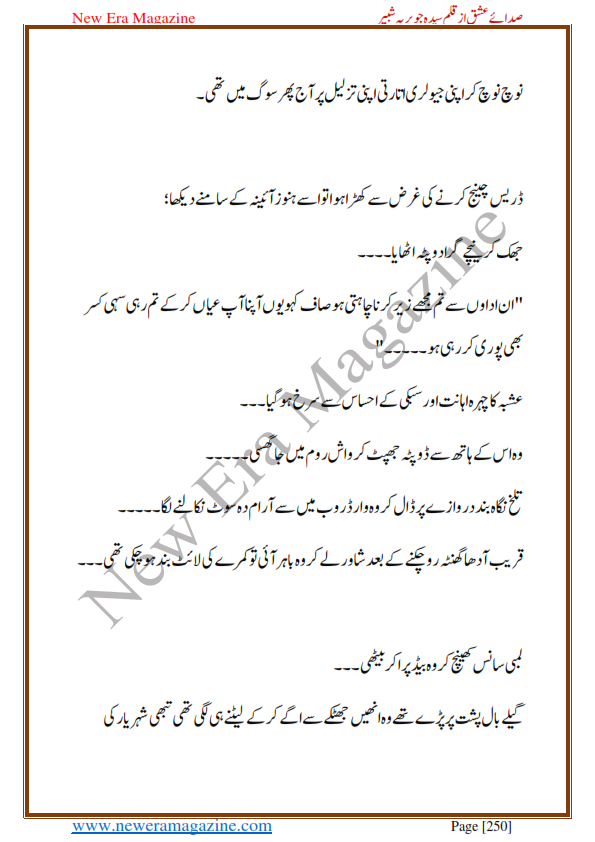 New Era Magazine صدائے عشق از قلم سیدہ جویریہ شبیر
نوچ نوچ کر اپنی جیولری اتارتی اپنی تزلیل پر آج پھر سوگ میں تھی۔
ڈریس چینج کرنے کی غرض سے کھڑا ہوا تو اسے ہنوز آئینہ کے سامنے دیکھا؛
جھک کر نیچے گرا دوپٹہ اٹھایا۔۔۔۔
"ان اداوں سے تم مجھے زیر کرنا چاہتی ہو صاف کہو یوں آپنا آپ عیاں کر کے تم رہی سہی کسر
بھی پوری کر رہی ہو۔۔۔۔۔"
عشبہ کا چہرہ اہانت اور سبکی کے احساس سے سرخ ہو گیا۔۔۔
وہ اس کے ہاتھ سے ڈوپٹہ جھپٹ کر واش روم میں جا گھسی۔۔۔۔۔
تلخ نگاہ بند دروازے پر ڈال کر وہ وارڈروب میں سے آرام دہ سوٹ نکالنے لگا۔۔۔۔۔
قریب آدھا گھنٹہ رو چکنے کے بعد شاور لے کر وہ باہر آئی تو کمرے کی لائٹ بند ہو چکی تھی۔۔۔
لمبی سانس کھینچ کر وہ بیڈ پر اکر بیٹھی۔۔۔
گیلے بال پشت پر پڑے تھے وہ انھیں جھٹکے سے اگے کر کے لیٹنے ہی لگی تھی تبھی شہریار کی
New Era Magazine
www.neweramagazine.com Page [250]